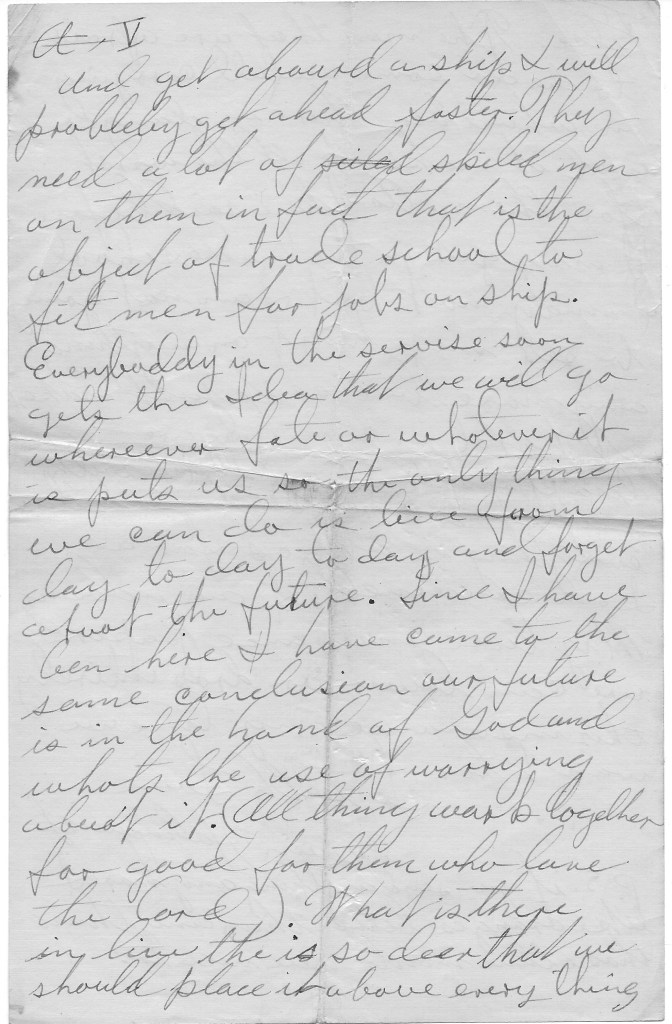 V
and get abourd a ship & will
probleby get ahead faster. They
need a lot of skiled men
on them in fact that is the
object of trade school to
fit men for jobs on ship.
Everybuddy in the servise soon
gets the idea that we will go
whereever fate or whatever it
is puts us so the only thing
we can do is live from
day to day to day and forget
about the future. Since I have
ben here I have come to the
same conclusion our future
is in the hand of God and
whats the use of warrying
about it. (All thing work together
for good for them who love
the Lord). What is there
in live the is so deer that we
should place it above every thing